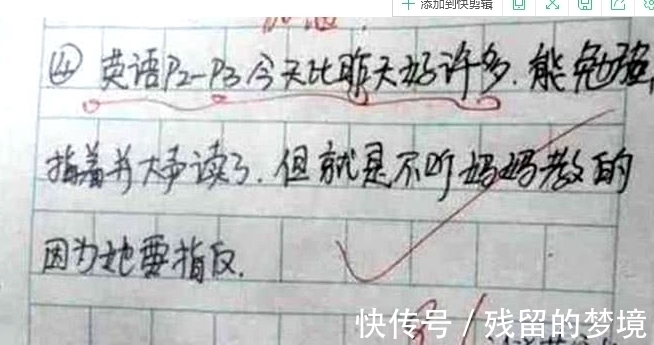 添加到快剪辑
④ 英语P2-P3今天比昨天好许多.能勉强
指着并大声读了.但就是不听妈妈教的
因为她要指反.
快传号 / 残留的梦境